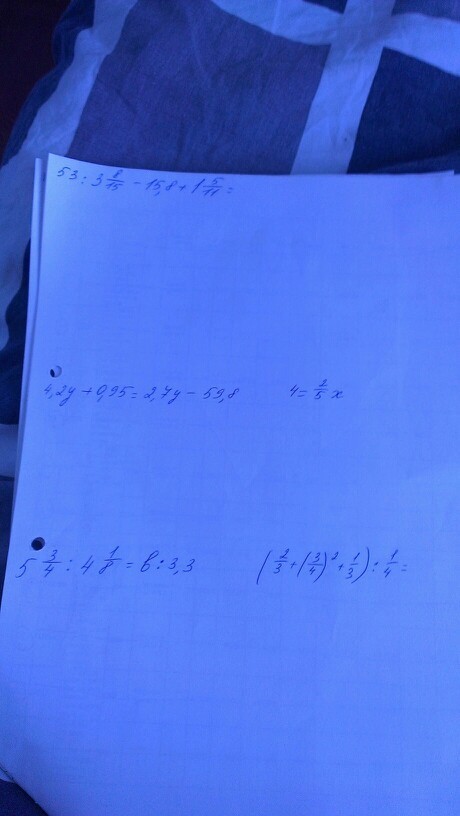 53 : 3 8/15 - 15,8 + 1 5/11 =
4,2y + 0,95 = 2,7y - 59,8 4 = 2/5 x
5 3/4 : 4 1/8 = b : 3,3 (2/3 + (3/4)² + 1/3) : 1/4 =